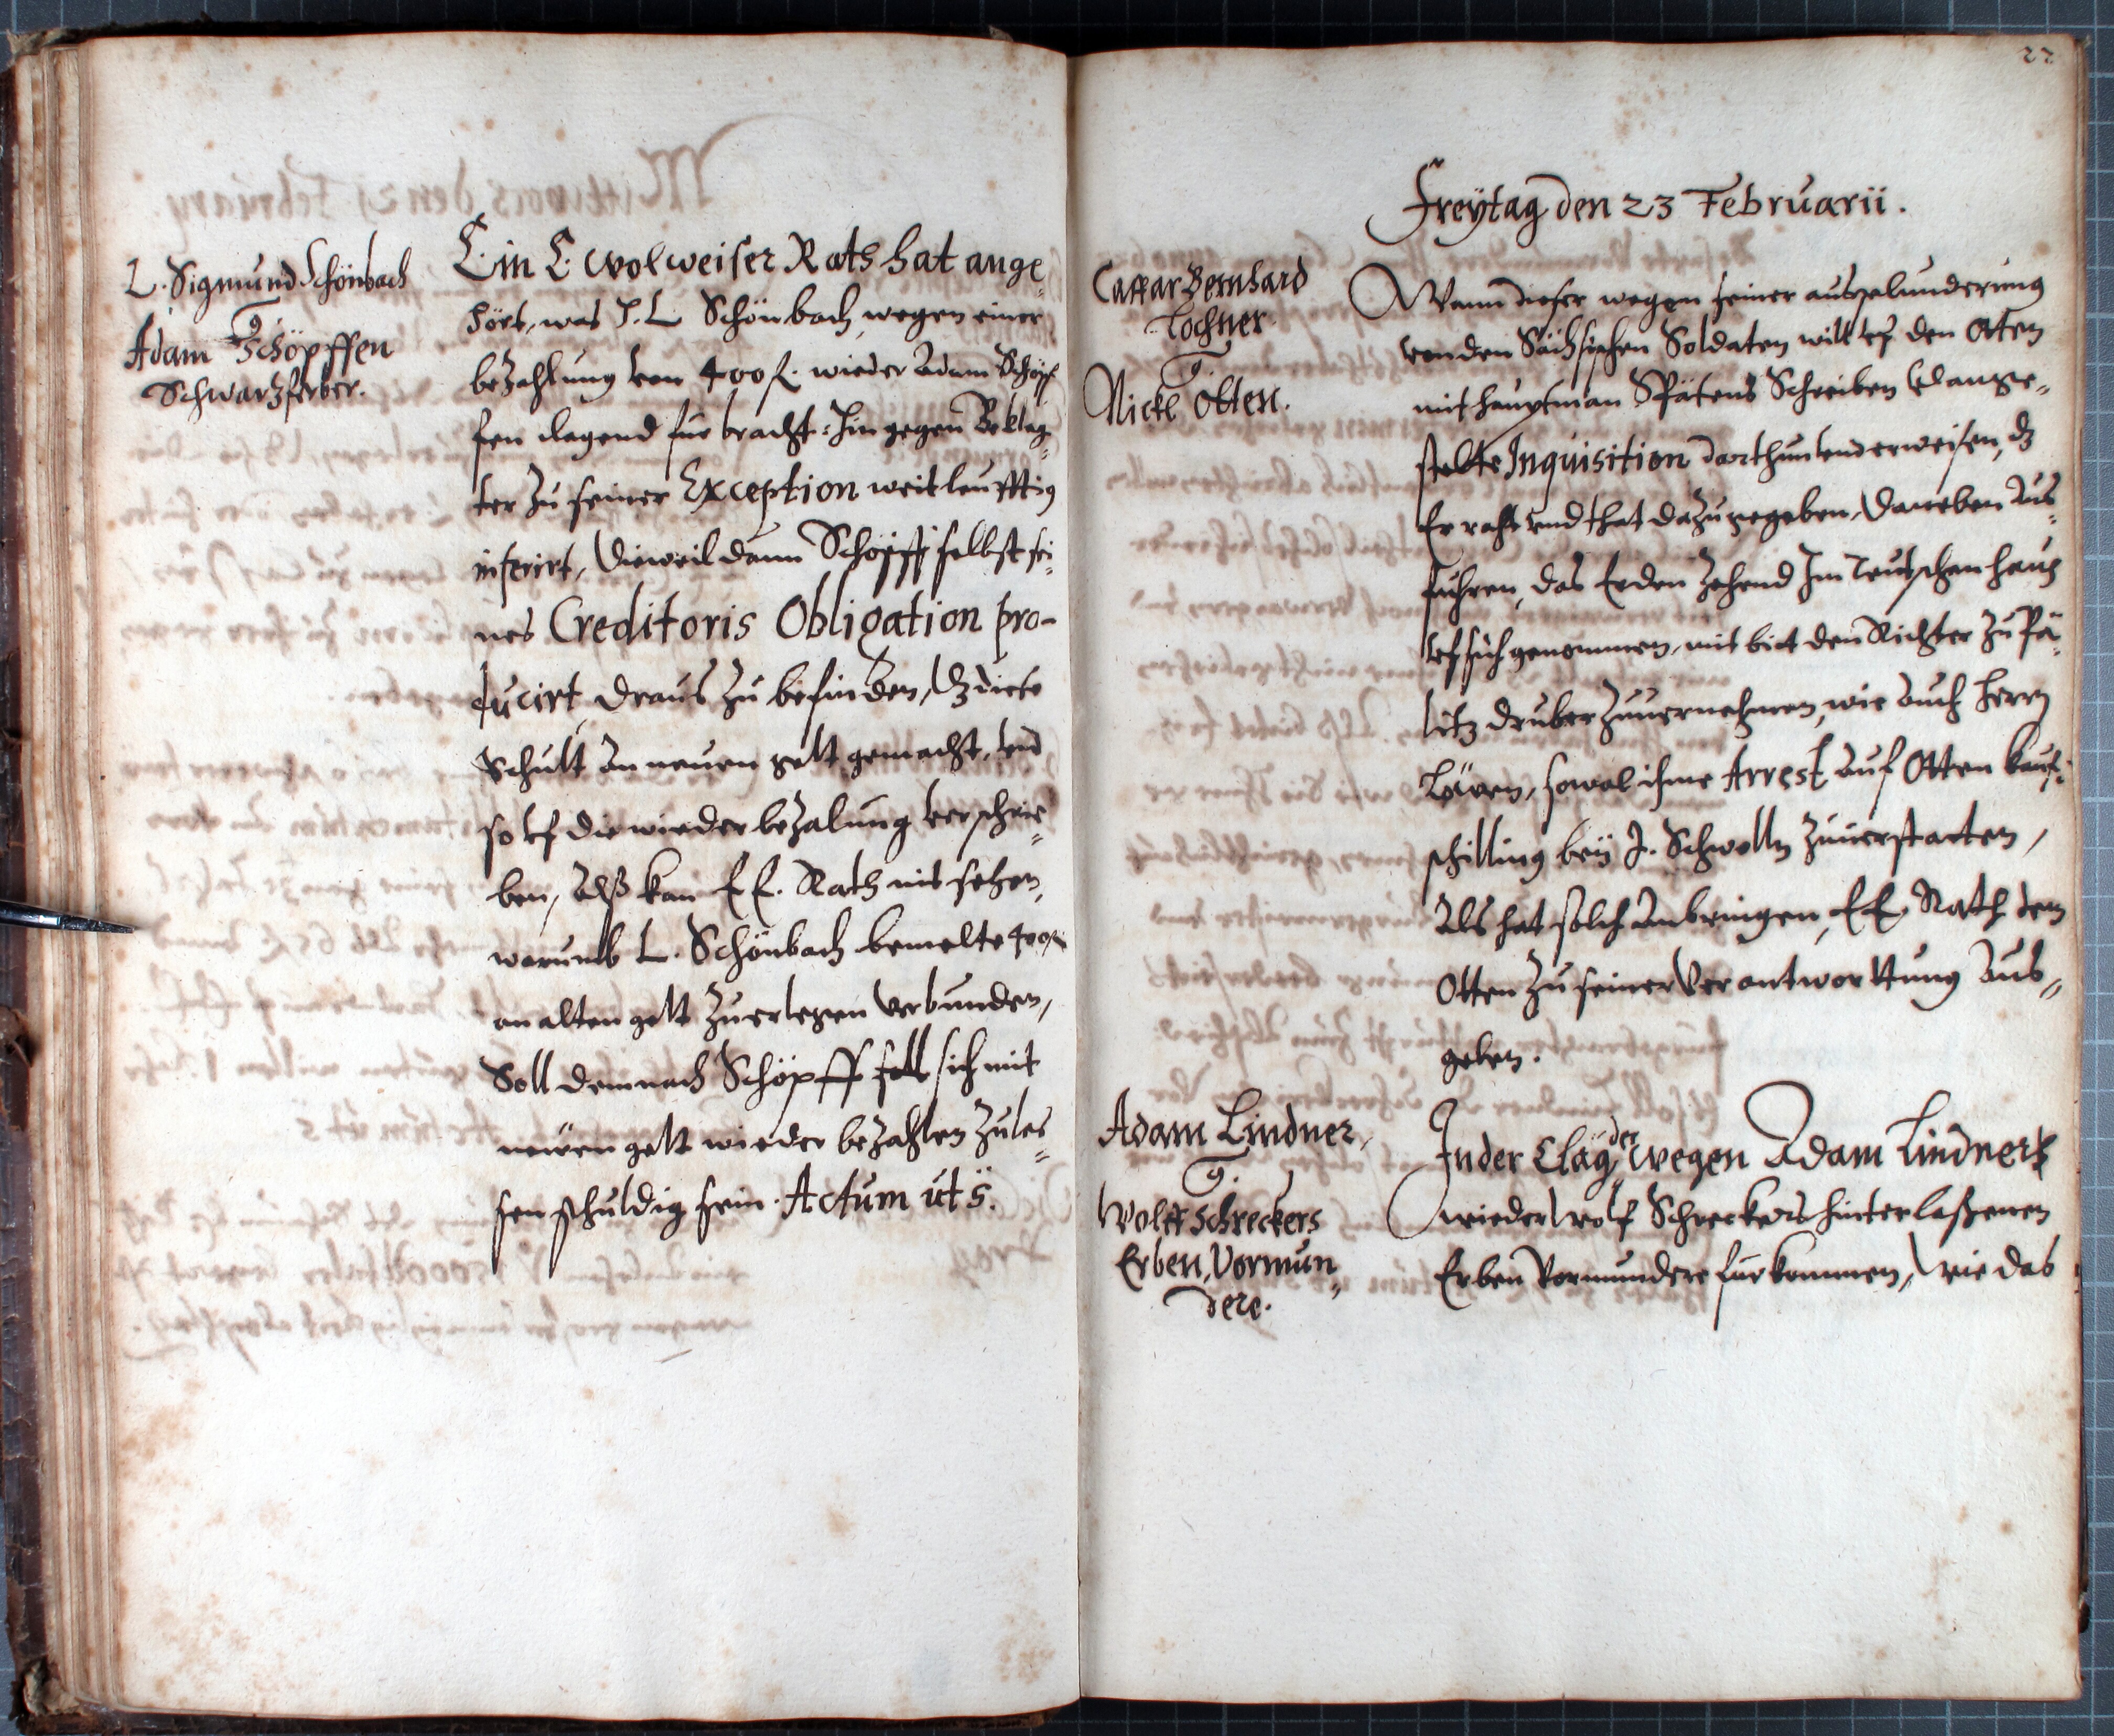 L. Sigmund Schönbach
Adam Schöpffen
Schwartzferber.
Ein E. wolweiser Raths hat ange¬
hört, was J. L. Schönbach wegen einer
bezahlung von 400 f. wieder Adam Schöpf
fen clagend fur bracht: Hingegen Beklag¬
ter zu seiner Exception weitleufftig
inserirt, Dieweil dann Schöpff selbst sei¬
nes Creditoris Obligation pro-
ducirt, draus zu befinden, dz diese
Schult an neuen gelt gemacht, vnd
so vf die wiederbezalung verschrie¬
ben, Alß kan E E. Rath nit sehen,
warumb L. Schönbach bemelte 400 f.
an alten gelt zuerlegen verbunden,
Soll demnach Schöpff sich mit
neuen gelt wieder bezahlen zulas¬
sen schuldig sein. Actum ut s.
22
Freÿtag den 23 Februarii.
Caspar Bernhard
Lochner.
Nickl Otten.
Wann dieser wegen seiner ausplunderung
von den Sächsischen Soldaten will vf den Otten
mit hauptman Spätens Schreiben vnd ange¬
stelte Inquisition darthun vnd erweisen, dz
Er raht vnd that dazu gegeben, Daneben aus¬
fuhren, das Er den zehend Im Teutschen haus
vf sich genommen, mit bit den Richter zu Pä¬
litz druber zuuernehmen, wie auch herrn
sowol ihme Arrest auf Otten kauf¬
schilling beÿ J. Schwolln zuuerstatten,
Als hat solch anbringen, E E. Rath dem
Otten zu seiner Verantworttung aus¬
geben.
Adam Lindner,
Wolff Schreckers
Erben, Vormun¬
dere.
In der Clag der wegen Adam Lindners
wieder Wolf Schreckers hinterlaßenen
Erben Vormundere furkommen, wie das